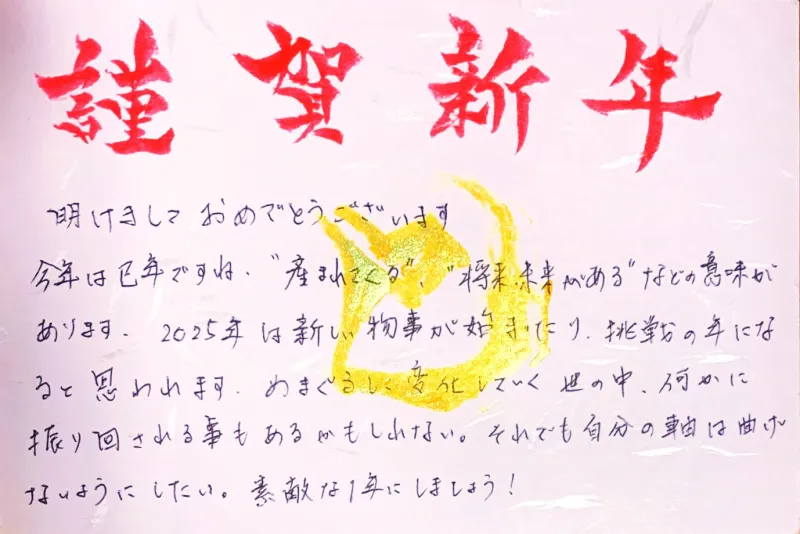 謹賀新年
明けまして おめでとうございます
今年は巳年ですね. "産まれてくる"、"将来、未来がある"などの意味が
あります. 2025年は新しい物事が始まったり、挑戦の年にな
ると思われます. めまぐるしく変化していく世の中、何かに
振り回される事もあるかもしれない。それでも自分の軸は曲げ
ないようにしたい。素敵な1年にしましょう!